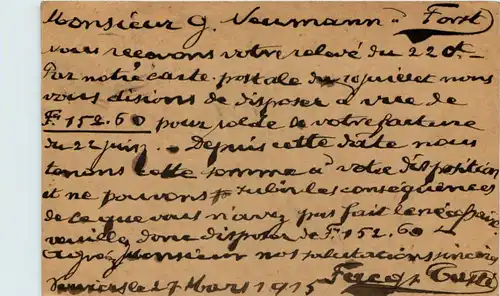 Monsieur G. Neumann " Forst
nous recevons votre relevé du 22 ct -
Par notre carte postale du 10 juillet nous
vous disions de disposer à vue de
F. 152.60 pour solde de votre facture
du 22 juin. - Depuis cette date nous
tenons cette somme à votre disposition
et ne pouvons subir les conséquences
de ce que vous n'avez pas fait le nécessaire
veuillez donc disposer de F. 152.60
Agréez Monsieur nos salutations sincères
le 27 Mars 1915